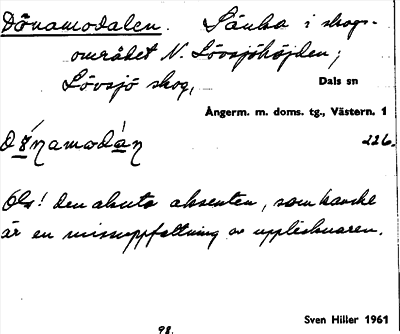 Dönamodalen. Sänka i skogs-
området N. Lövsjöhöjden;
Lövsjö skog,
Dals sn
Ångerm. m. doms. tg., Västern. 1
226.
Obs! den akuta aksenten, som kanske
är en missuppfattning av uppteckn­aren.
Sven Hiller 1961
98.